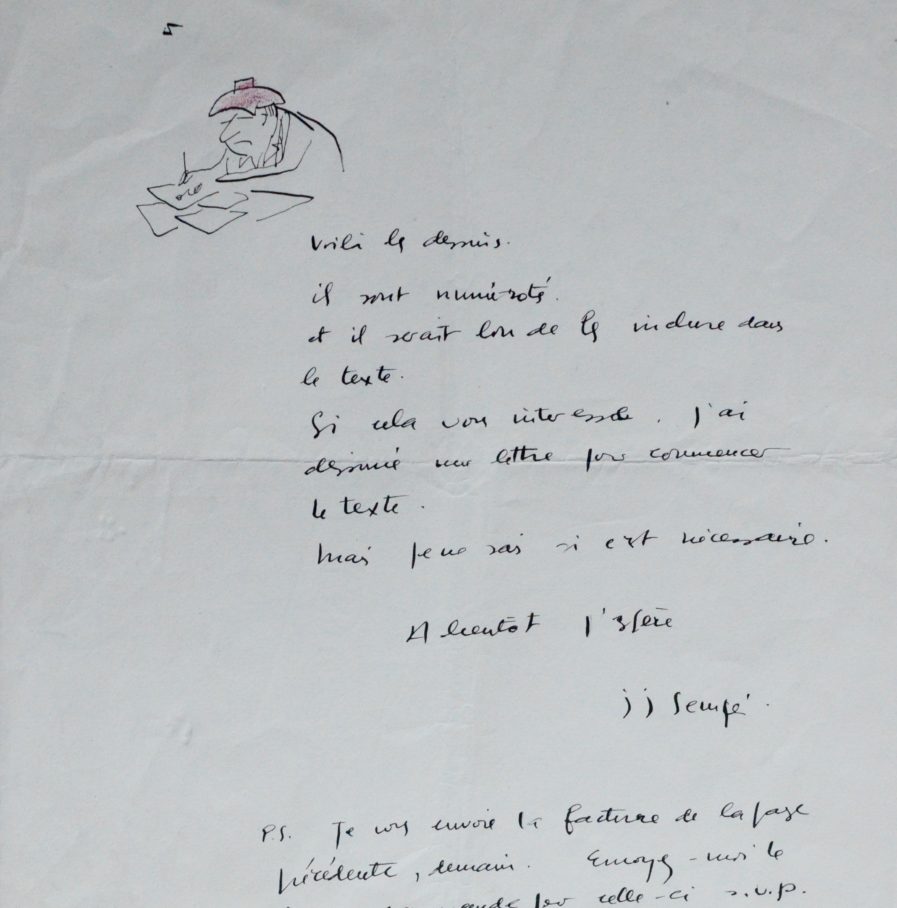 5
Voilà les dessins.
il sont numérotés.
et il serait bon de les inclure dans
le texte.
Si cela vous interesse. j'ai
dessiné une lettre pour commencer
le texte.
Mais je ne sais si c'est nécessaire.
A bientôt j'espère
jj Sempé.
P.S. Je vous envoie la facture de la page
précédente, demain. Envoyez-moi le
pour celle-ci s.v.p.